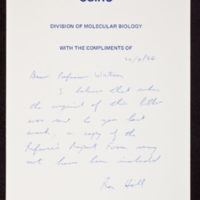 CSIRO
DIVISION OF MOLECULAR BIOLOGY
WITH THE COMPLIMENTS OF
Dear Professor Watson
I believe that when
the original of this letter
was sent to you last
week, a copy of the
Referee's Report Form may
not have been included